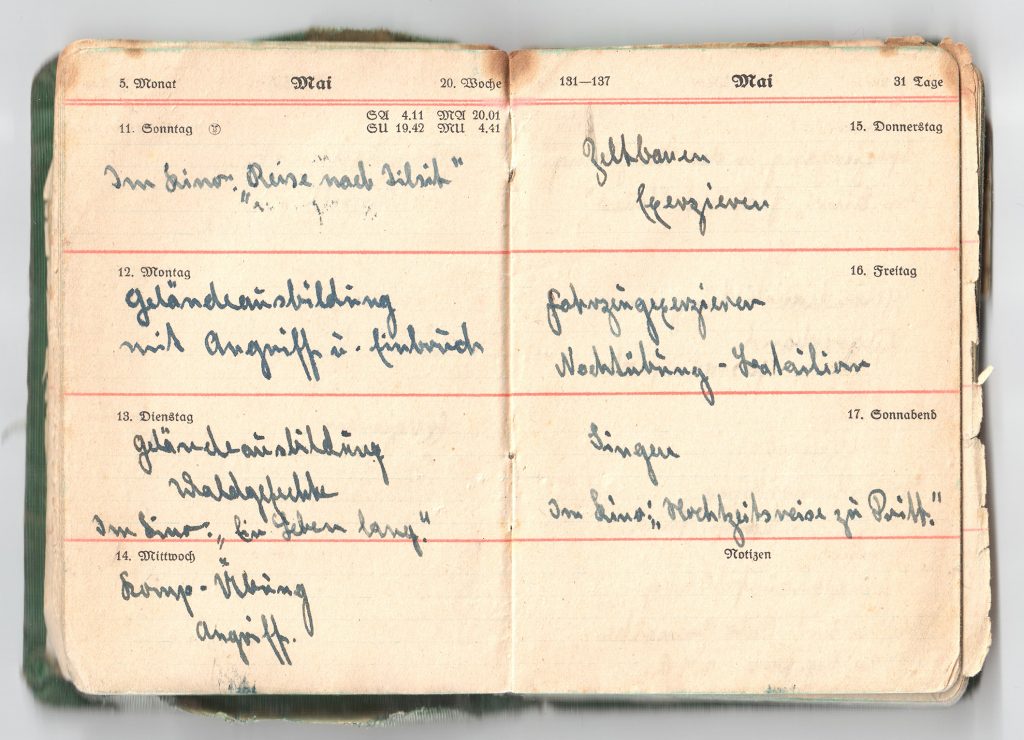 5. Monat Mai 20. Woche
SA 4.11 MA 20.01
11. Sonntag SU 19.42 MU 4.41
Im Kino: „Reise nach Tilsit"
12. Montag
Geländeausbildung
mit Angriff u. Einbruch
13. Dienstag
Geländeausbildung
Waldgefechte
Im Kino: „Ein Leben lang"
14. Mittwoch
Komp-Übung
Angriff.
131—137 Mai 31 Tage
15. Donnerstag
Zeltbauen
Exerzieren
16. Freitag
Fahrzeugexerzieren
Nachtübung - Batailion
17. Sonnabend
Singen
Im Kino: „Hochzeitsreise zu Dritt."
Notizen